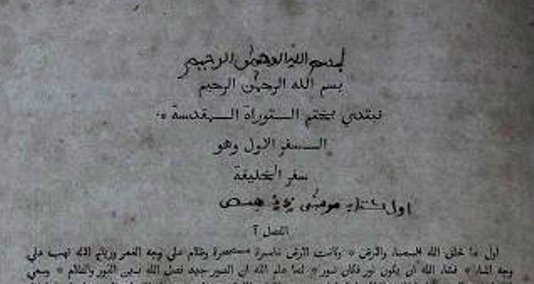 بسم الله الرحمن الرحيم
بسم الله الرحمن الرحيم
نبتدي بختم التوراة المقدسة
السفر الاول وهو
سفر الخليقة
اول
الفصل ٢
اول ما خلق الله السما والارض * وكانت الارض غامرة مستبحرة وظلام علي وجه الغمر ورياح الله تهب علي
وجه الما * فشاء الله ان يكون نور فكان نور * لما علم الله ان النور جيد فصل الله بين النور والظلام * وسمي